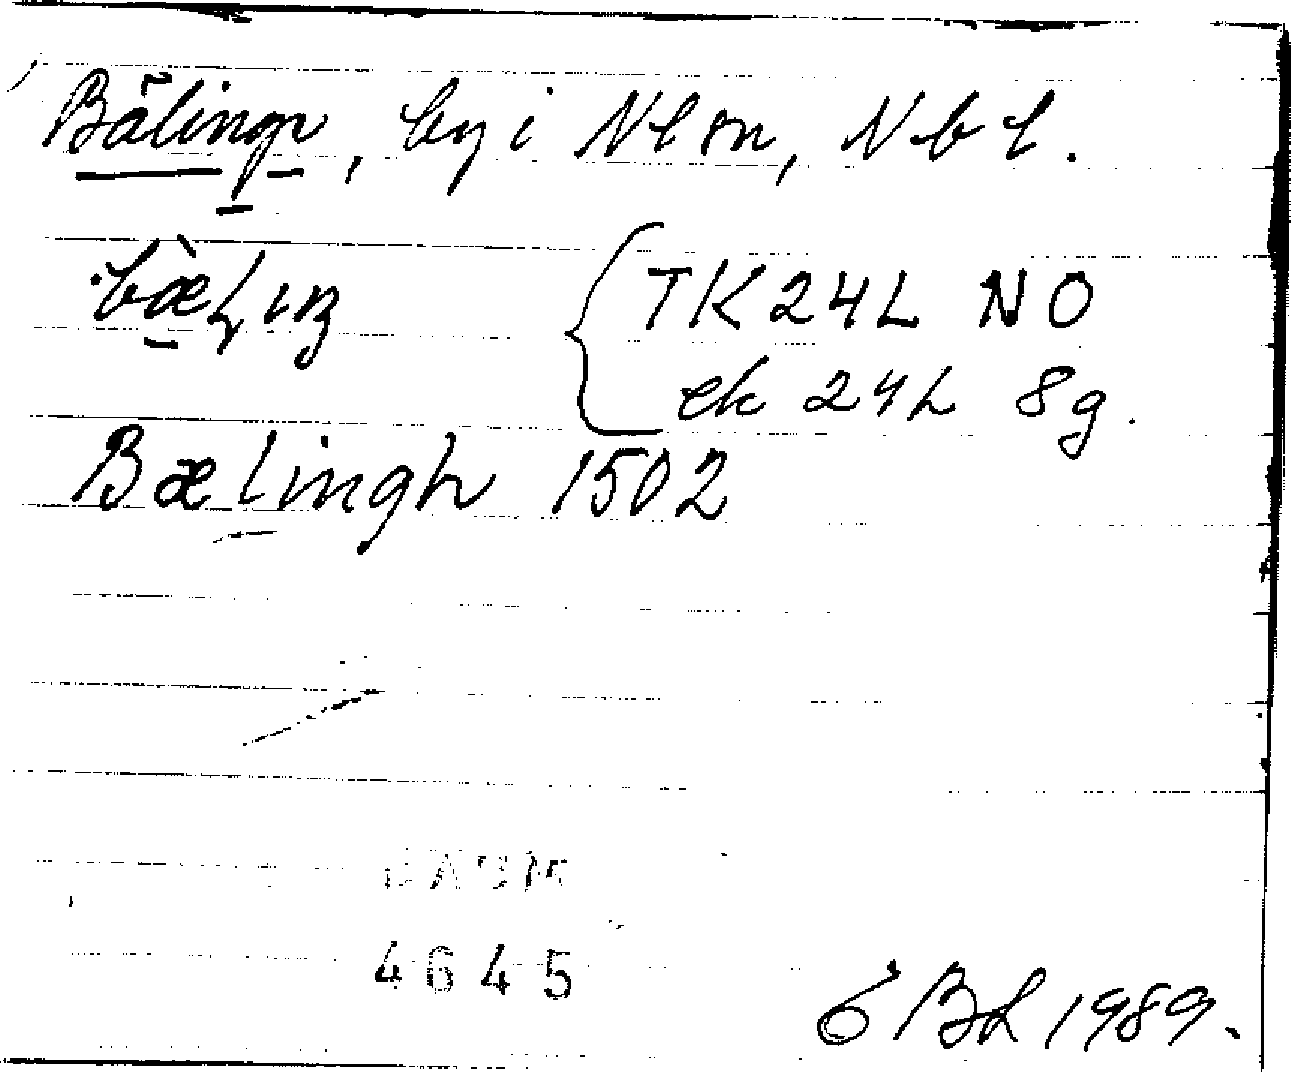 Bälinge, by i Nlsn, Nbl.
TK 24L NO
ek 24L 8g.
Bælingh 1502
4645
ÖBL 1989.